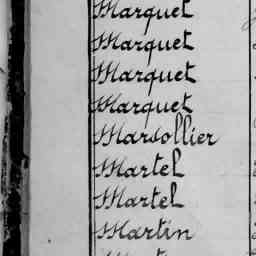 Marquet
Marquet
Marquet
Marquet
Marsollier
Martel
Martel
Martin